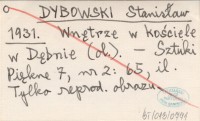 DYBOWSKI Stanisław
1931. Wnętrze w kościele
w Dębnie (ol.). – Sztuki
Piękne 7, nr 2: 65, il.
Tylko reprod. obrazu.